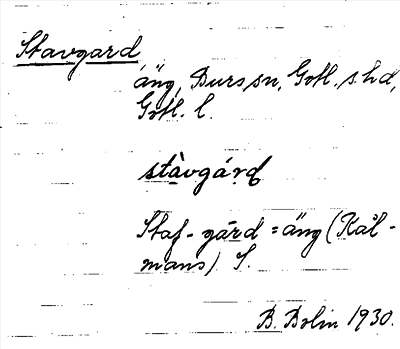 Stavgard
äng, Burs sn, Gotl. s. hd,
Gotl. l.
stàvgárđ
Staf-gård = äng (Käl-
mans) S.
B. Bolin 1930.